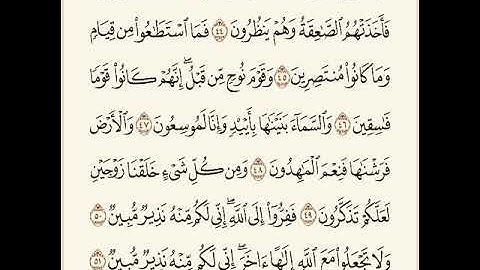 فَأَخَذَتْهُمُ ٱلصَّـٰعِقَةُ وَهُمْ يَنظُرُونَ ٤٤ فَمَا ٱسْتَطَـٰعُوا۟ مِن قِيَامٍ
وَمَا كَانُوا۟ مُنتَصِرِينَ ٤٥ وَقَوْمَ نُوحٍ مِّن قَبْلُ ۖ إِنَّهُمْ كَانُوا۟ قَوْمًا
فَـٰسِقِينَ ٤٦ وَٱلسَّمَآءَ بَنَيْنَـٰهَا بِأَيْي۟دٍ وَإِنَّا لَمُوسِعُونَ ٤٧ وَٱلْأَرْضَ
فَرَشْنَـٰهَا فَنِعْمَ ٱلْمَـٰهِدُونَ ٤٨ وَمِن كُلِّ شَىْءٍ خَلَقْنَا زَوْجَيْنِ
لَعَلَّكُمْ تَذَكَّرُونَ ٤٩ فَفِرُّوٓا۟ إِلَى ٱللَّهِ ۖ إِنِّى لَكُم مِّنْهُ نَذِيرٌ مُّبِينٌ ٥٠
وَلَا تَجْعَلُوا۟ مَعَ ٱللَّهِ إِلَـٰهًا ءَاخَرَ ۖ إِنِّى لَكُم مِّنْهُ نَذِيرٌ مُّبِينٌ ٥١